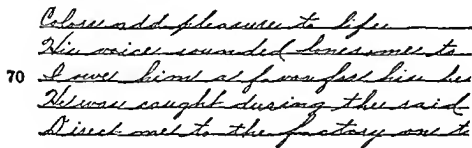 Colors add pleasure to life
His voice sounded lonesome to
70 I owe him a favour for his
He was caught during the raid
Direct me to the factory one to